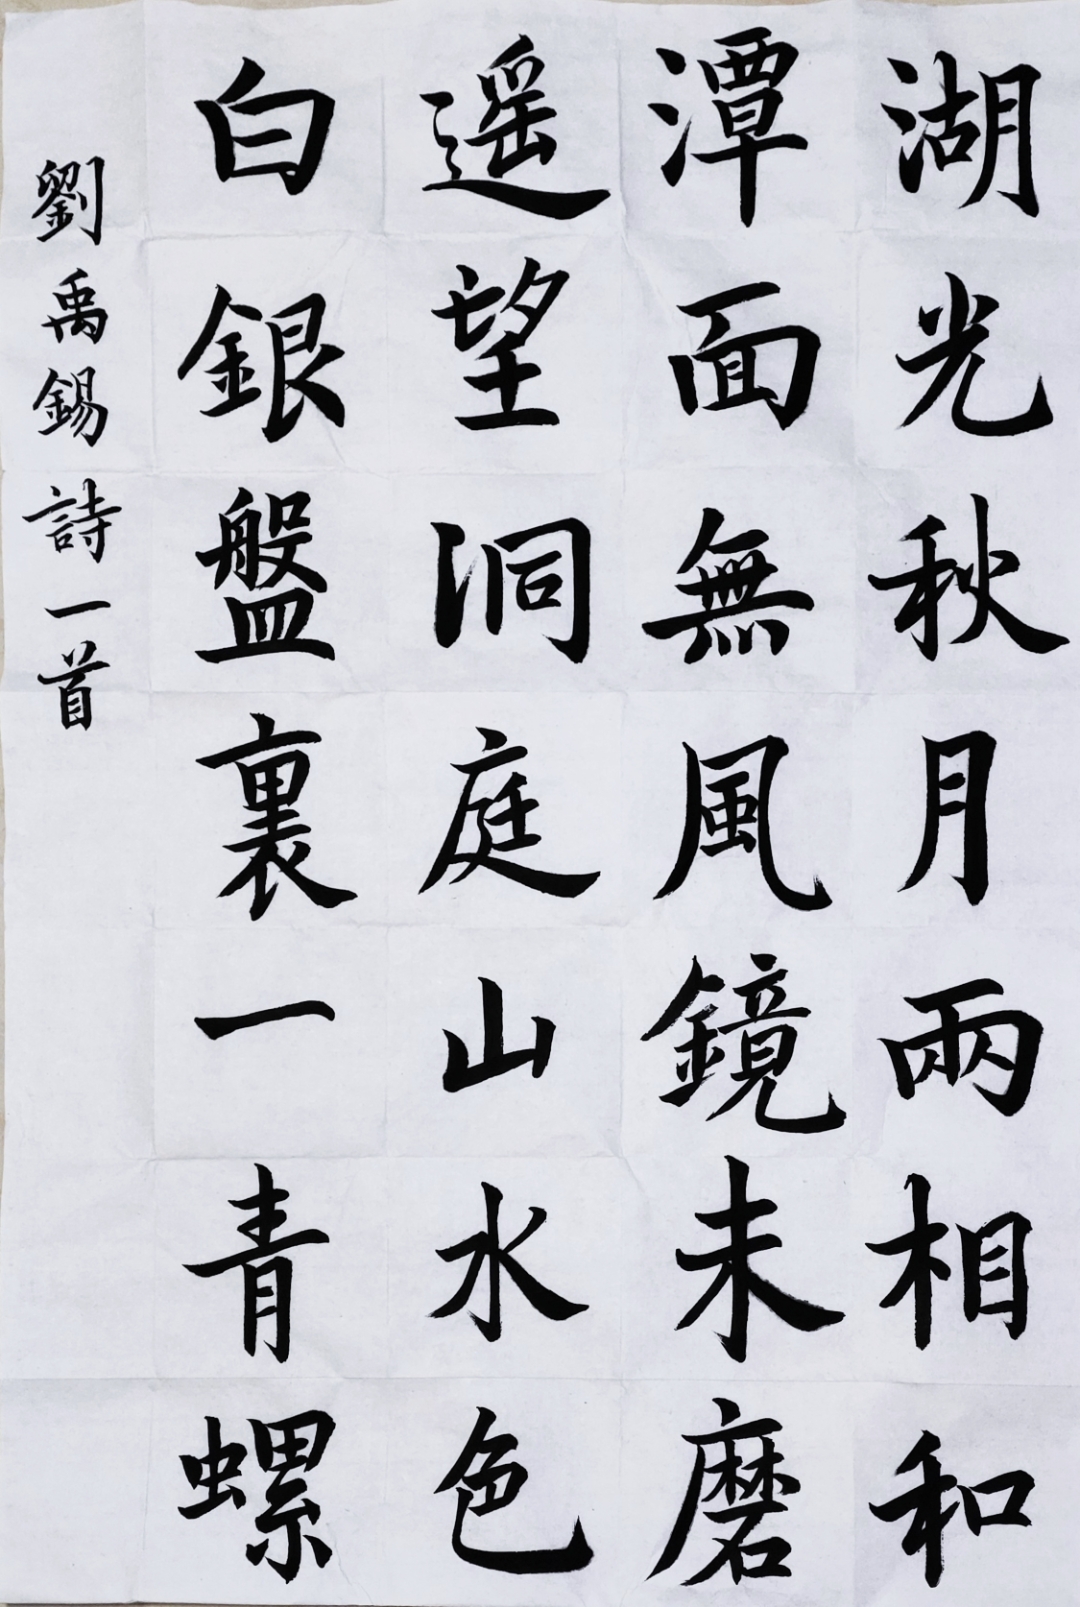 湖光秋月兩相和
潭面無風鏡未磨
遥望洞庭山水色
白銀盤裏一青螺
劉禹錫詩一首